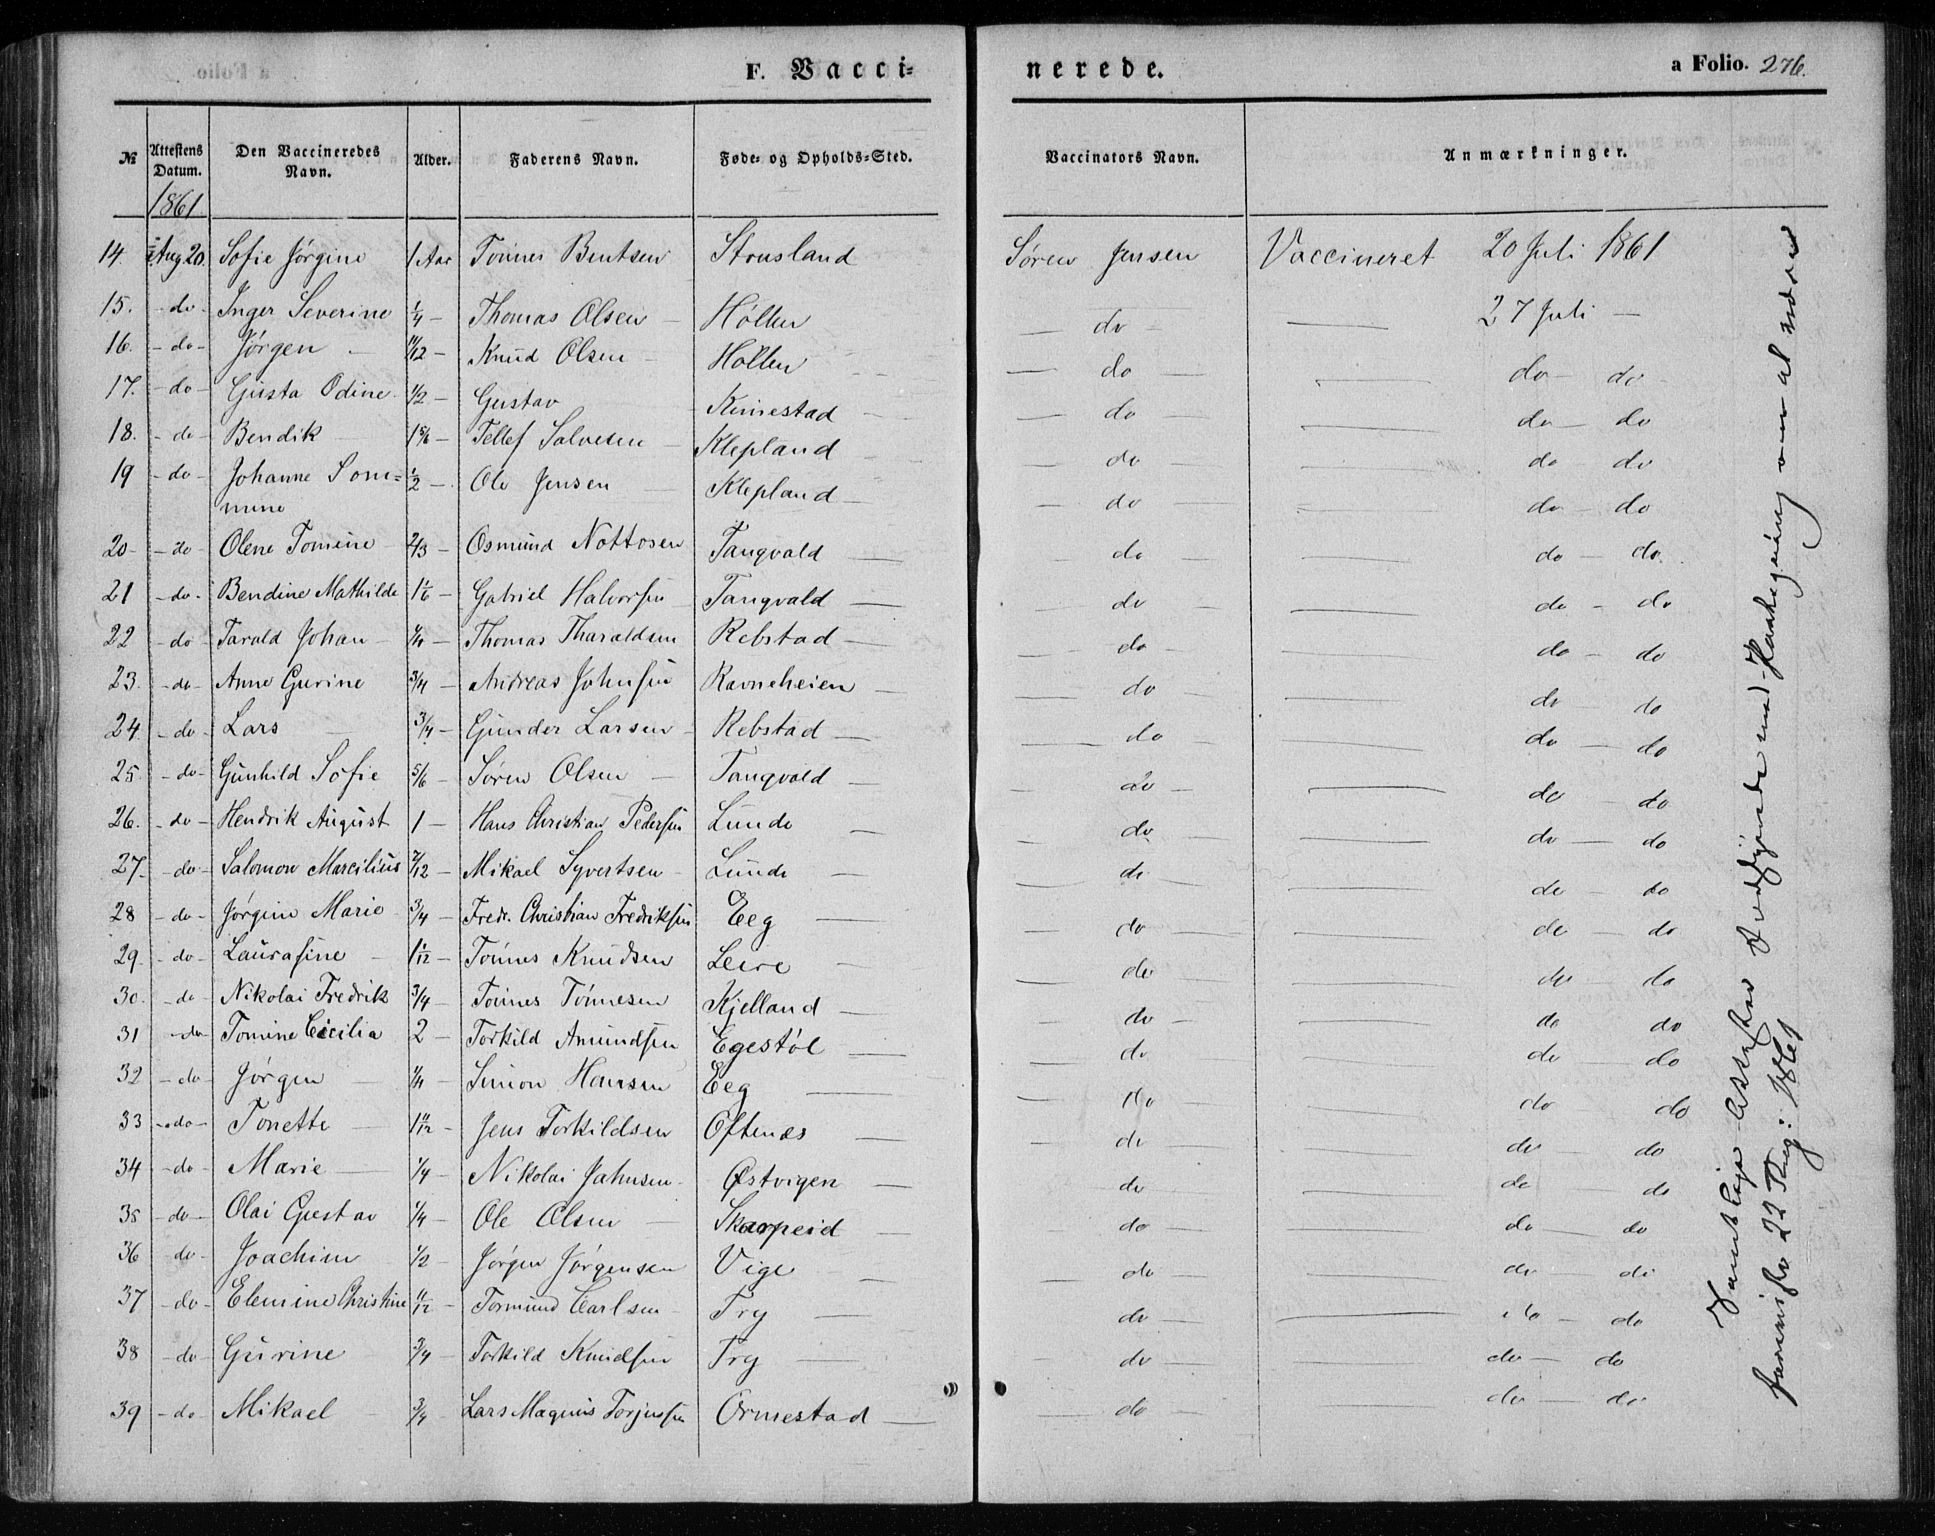 F. Vacci-nerede. a Folio. 276.
№ Attestens Datum. Den Vaccineredes Navn. Alder. Faderens Navn. Føde- og Opholds-Sted. Vaccinators Navn. Anmærkninger.
1861
14. Aug 20. Sofie Jørgine 1 Aar Tønnes Bentsen Stousland Søren Jensen Vaccineret 20 Juli 1861
15. - do - Inger Severine 1/4 - Thomas Olsen - Hölten - do - — 27 Juli —
16. - do - Jørgen - 11/12 - Knud Olsen - Holten — do — — do - do
17. - do - Gusta Odine 1/2 - Gustav Kimestad — — do — — do - do
18. - do - Bendik 1 5/6 - Tellef Salvesen Klepland — do — — do - do
19 - do - Johanne Som= 1/2 - Ole Jensen Klepland - — do — — do - do
mine
20 - - do Olene Tomine 2/3 - Osmund Nottosen Tangvald — do — — do - do.
21 - do - Bendine Mathilde 1 1/6 - Gabriel Halvorsen Tangvald — do — — do - do
22 - do Tarald Johan 1/4 - Thomas Tharaldsen Rebstad — — do — — do - do
23. - do - Anne Gurine 3/4 - Andreas Johnsen Ravneheien — do — — do - do
24. - do - Lars 3/4 - Gunder Larsen - Rebstad — — do — — do — do
25 - do - Gunhild Sofie 5/6 - Søren Olsen - Tangvald — — do — — do - do
26. - do - Hendrik August 1 - Hans Christian Pedersen Lunde — — do — — do - do
27. - do - Salomon Marcilius 7/12 - Mikael Syvertsen - Lunde — — do — — do - do
28 - do - Jørgine Marie 3/4 - Fredr. Christian Fredriksen Eeg — — do — — do - do
29 - do - Laurasine 1 1/12 - Tönnes Knudsen Leire — — do — — do - do
30. - do Nikolai Fredrik 3/4 - Tönnes Tönnesen Kjelland — — do — — do do
31 - do Tomine Cecilia 2 - Torkild Amundsen Egestöl — — do — — do - do
32 - do - Jørgen 1/4 - Simon Hansen Eeg — — do — — do do
33 - do - Tonette 1 11/12 - Jens Torkildsen Oftenæs — — do — — do - do
34 - do - Marie 1/4 - Nikolai Jahnsen - Østvigen — — do — — do - do
35 - do - Olai Gustav 1/4 - Ole Olsen - Skarpeid — — do — — do - do
36 - do - Joachim 1/2 - Jørgen Jørgensen Vige — — do — — do - do
37 - do - Elemine Christine 11/12 - Tormund Carlsen - Try — — do — — do - do
38 - do - Gurine 3/4 - Torkild Knudsen Try — — do — — do - do
39 - do - Mikael 3/4 - Lars Magnus Torjussen Ormestad — — do — — do - do
Samtlige Attester
om at være
22 Aug: 1861